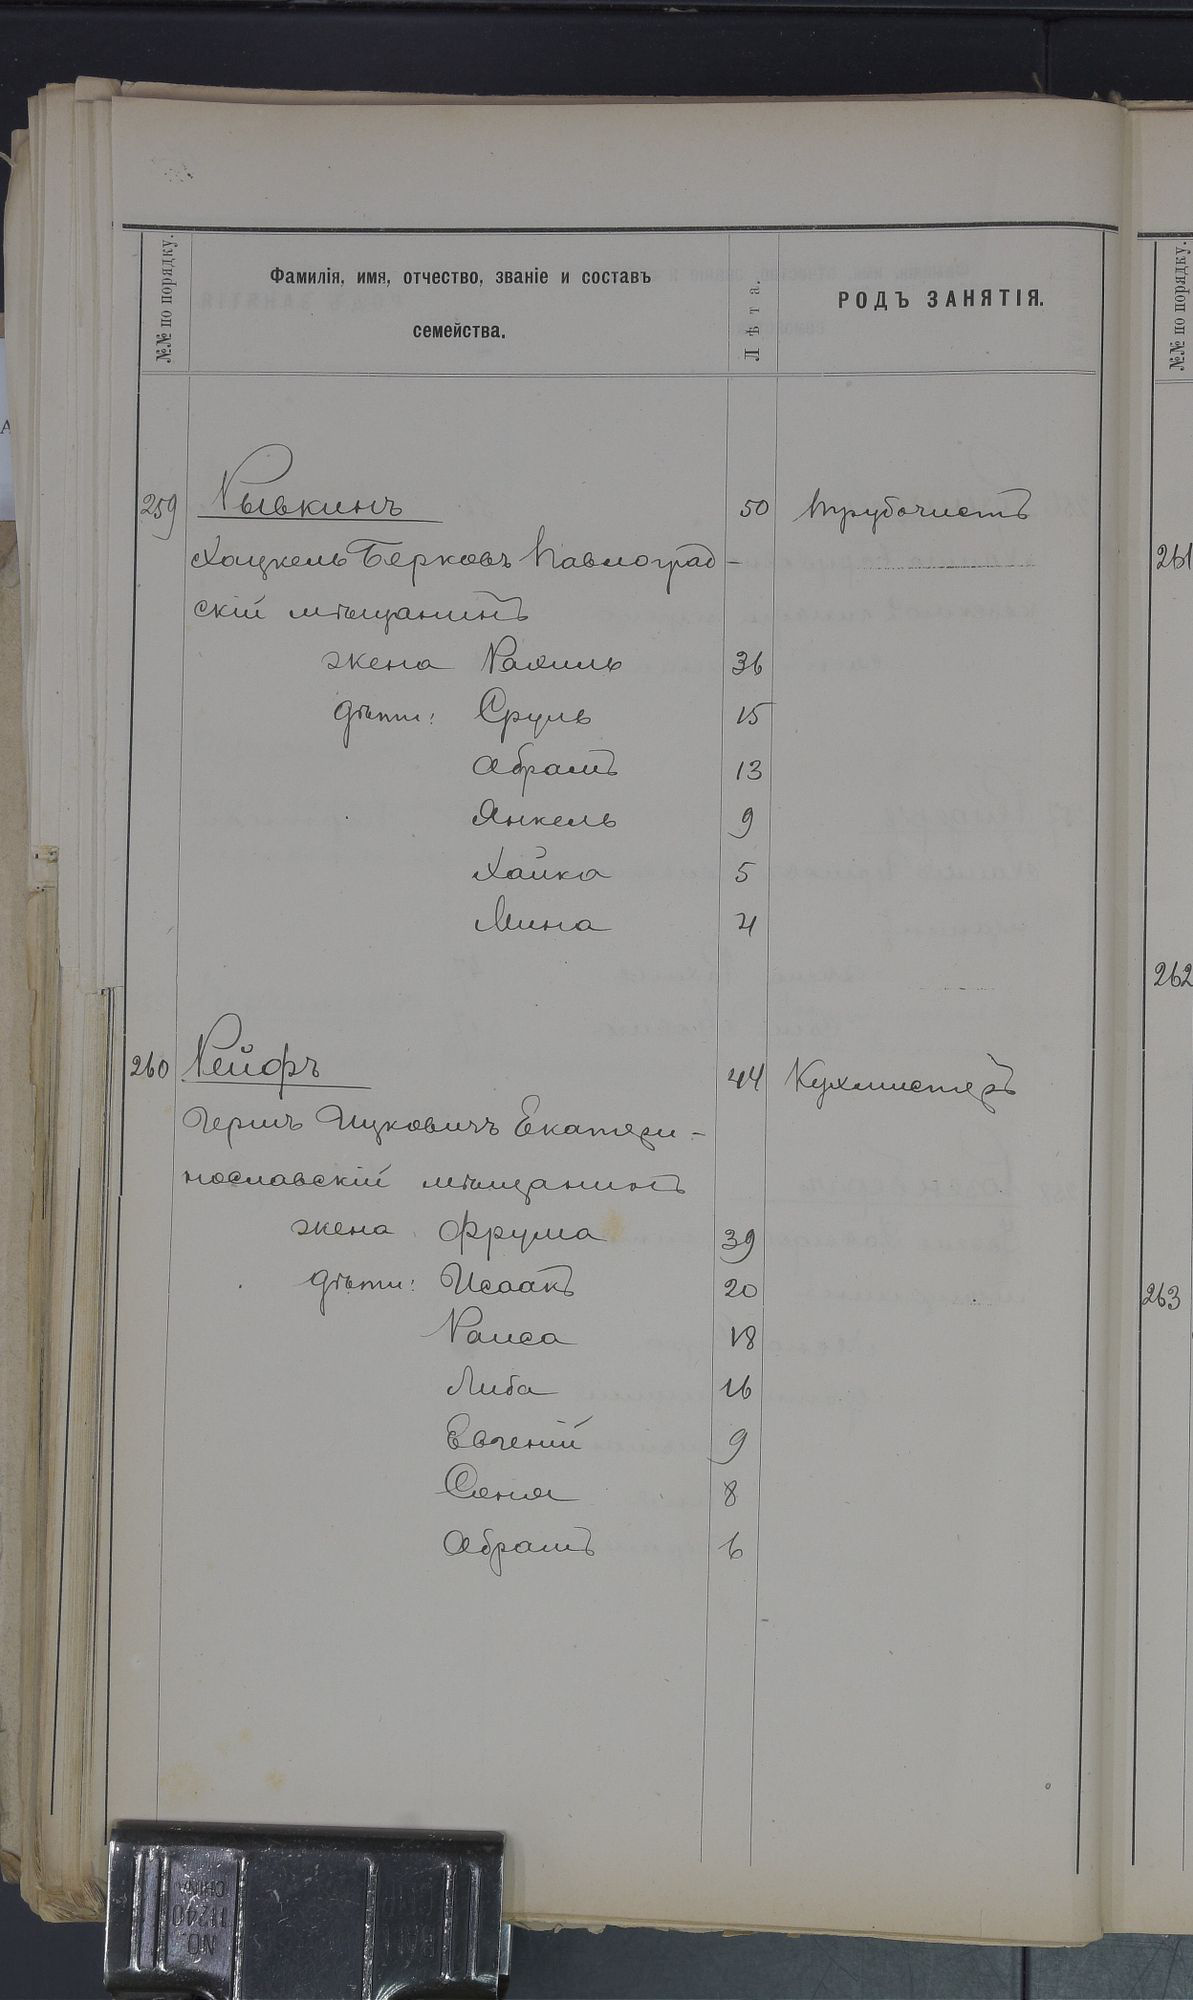 №№ по порядку.
Фамилія, имя, отчество, званіе и составъ
семейства.
Лѣта.
РОДЪ ЗАНЯТІЯ.
№№ по порядку.
259 Рывкинъ 50 Трубочистъ
Хацкель Берковъ Павлоград-
скій мѣщанинъ
жена Рахиль 36
дѣти: Сруль 15
Абрамъ 13
Янкель 9
Хайка 5
Мина 4
260 Рейфъ 44 Кухмистеръ
Гершъ Ицковичъ Екатери-
нославскій мѣщанинъ
жена Фрума 39
дѣти: Исаакъ 20
Раиса 18
Либа 16
Евгеній 9
Соня 8
Абрамъ 6
261
262
263
NO.
11240
CHINA